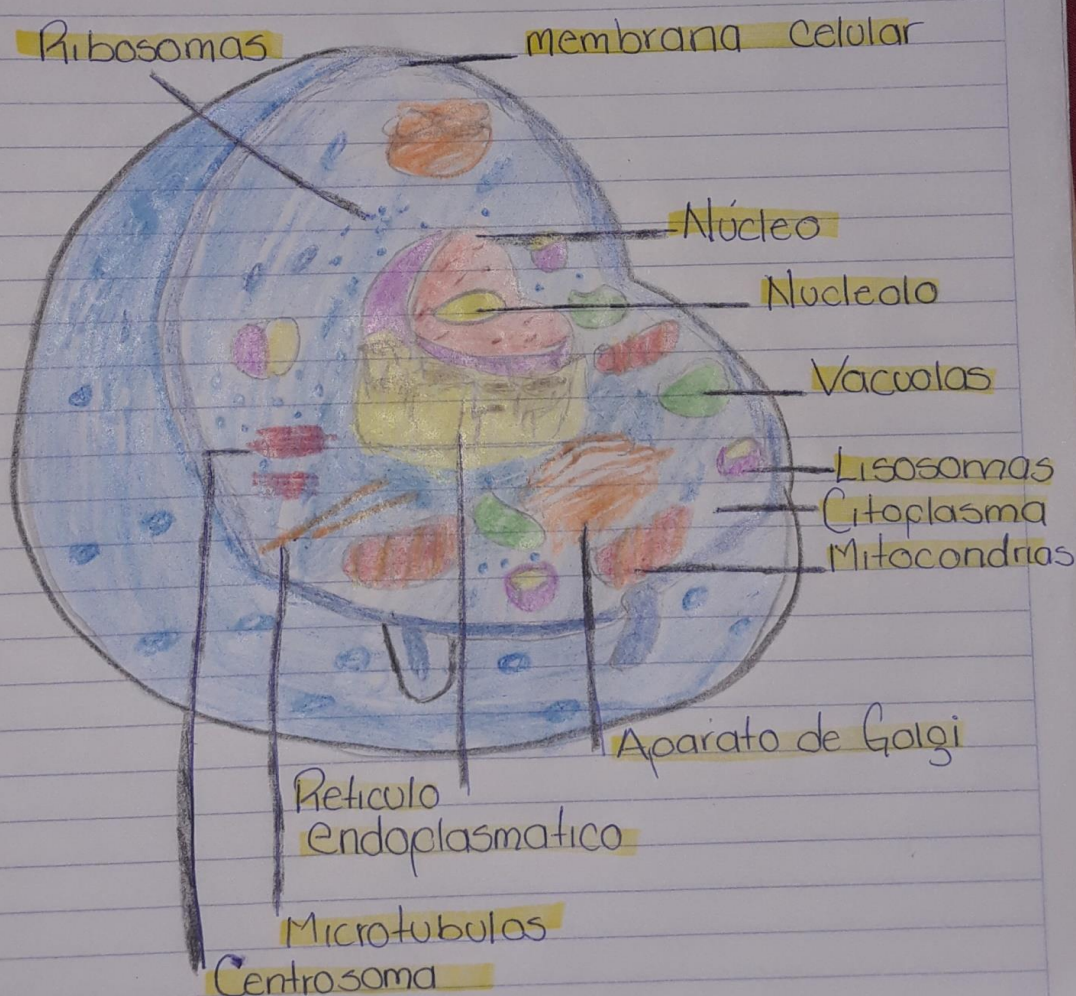 Ribosomas
membrana celular
Núcleo
Nucleolo
Vacuolas
Lisosomas
Citoplasma
Mitocondrias
Aparato de Golgi
Reticulo
endoplasmatico
Microtubulos
Centrosoma